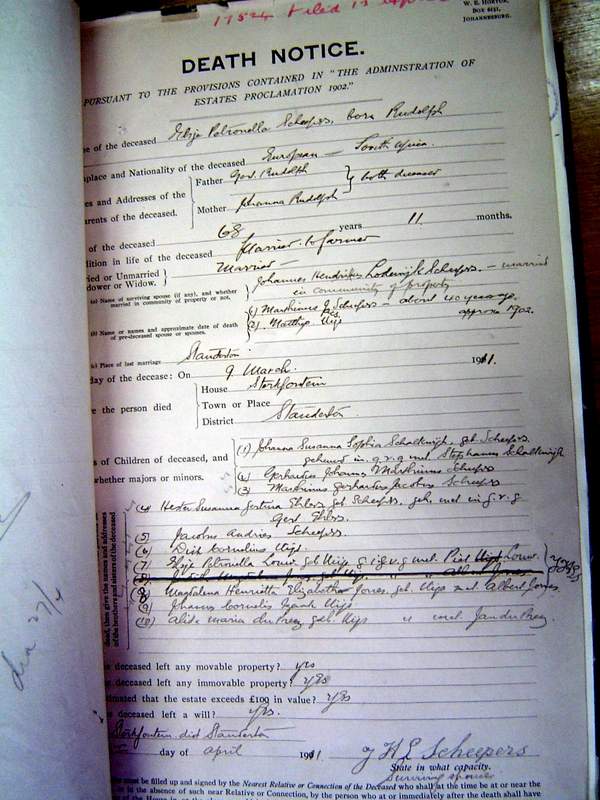 W. E. HORTOR,
BOX 6151,
JOHANNESBURG.
11524 Filed 13
DEATH NOTICE.
PURSUANT TO THE PROVISIONS CONTAINED IN "THE ADMINISTRATION OF
ESTATES PROCLAMATION 1902."
e of the deceased Elsje Petronella Scheepers, born Rudolph
hplace and Nationality of the deceased European — South Africa.
es and Addresses of the Father Gert Rudolph
rents of the deceased. Mother Johanna Rudolph both deceased
of the deceased 68 years 11 months.
dition in life of the deceased Married to farmer
ried or Unmarried Married
dower or Widow.
(a) Name of surviving spouse (if any), and whether married in community of property or not, Johannes Hendrikus Lodewijk Scheepers. — married
in community of property
(b) Name or names and approximate date of death of pre-deceased spouse or spouses. (1) Marthinus J Scheepers — about 40 years ago.
(2) Matthys Uijs approx 1902.
(c) Place of last marriage Standerton
day of the decease: On 9 March. 1911.
House Storkfontein
re the person died Town or Place
District Standerton
s of Children of deceased, and (1) Johanna Susanna Sophia Schalkwijk, geb. Scheepers,
gehuwd in g.v.g met Stephanus Schalkwijk
whether majors or minors. (2) Gerhardus Johannes Marthinus Scheepers
(3) Marthinus Gerhardus Jacobus Scheepers
(4) Hester Susanna Ehlers geb Scheepers, geh. met in g.v.g
Gert Ehlers.
dead, then give the names and addresses
of the brothers and sisters of the deceased
(5) Jacobus Andries Scheepers.
(6) Dirk Cornelius Uijs
(7) Elsje Petronella Louw. geb Uijs g i g.v.g met. Piet Louw.
(8) Magdalena Henrietta Elizabetha Jones, geb. Uijs met Albert Jones.
(9) Johannes Cornelis Uijs
(10) Alida Maria du Preez geb. Uijs " met. Jan du Preez
e deceased left any movable property? yes
e deceased left any immovable property? yes
timated that the estate exceeds £100 in value? yes
e deceased left a will? yes.
Storkfontein dist Standerton
day of April 1911 J H L Scheepers
State in what capacity.
Surviving spouse
must be filled up and signed by the Nearest Relative or Connection of the Deceased who shall at the time be at or near the
or in the absence of such near Relative or Connection, by the person who at or immediately after the death shall have